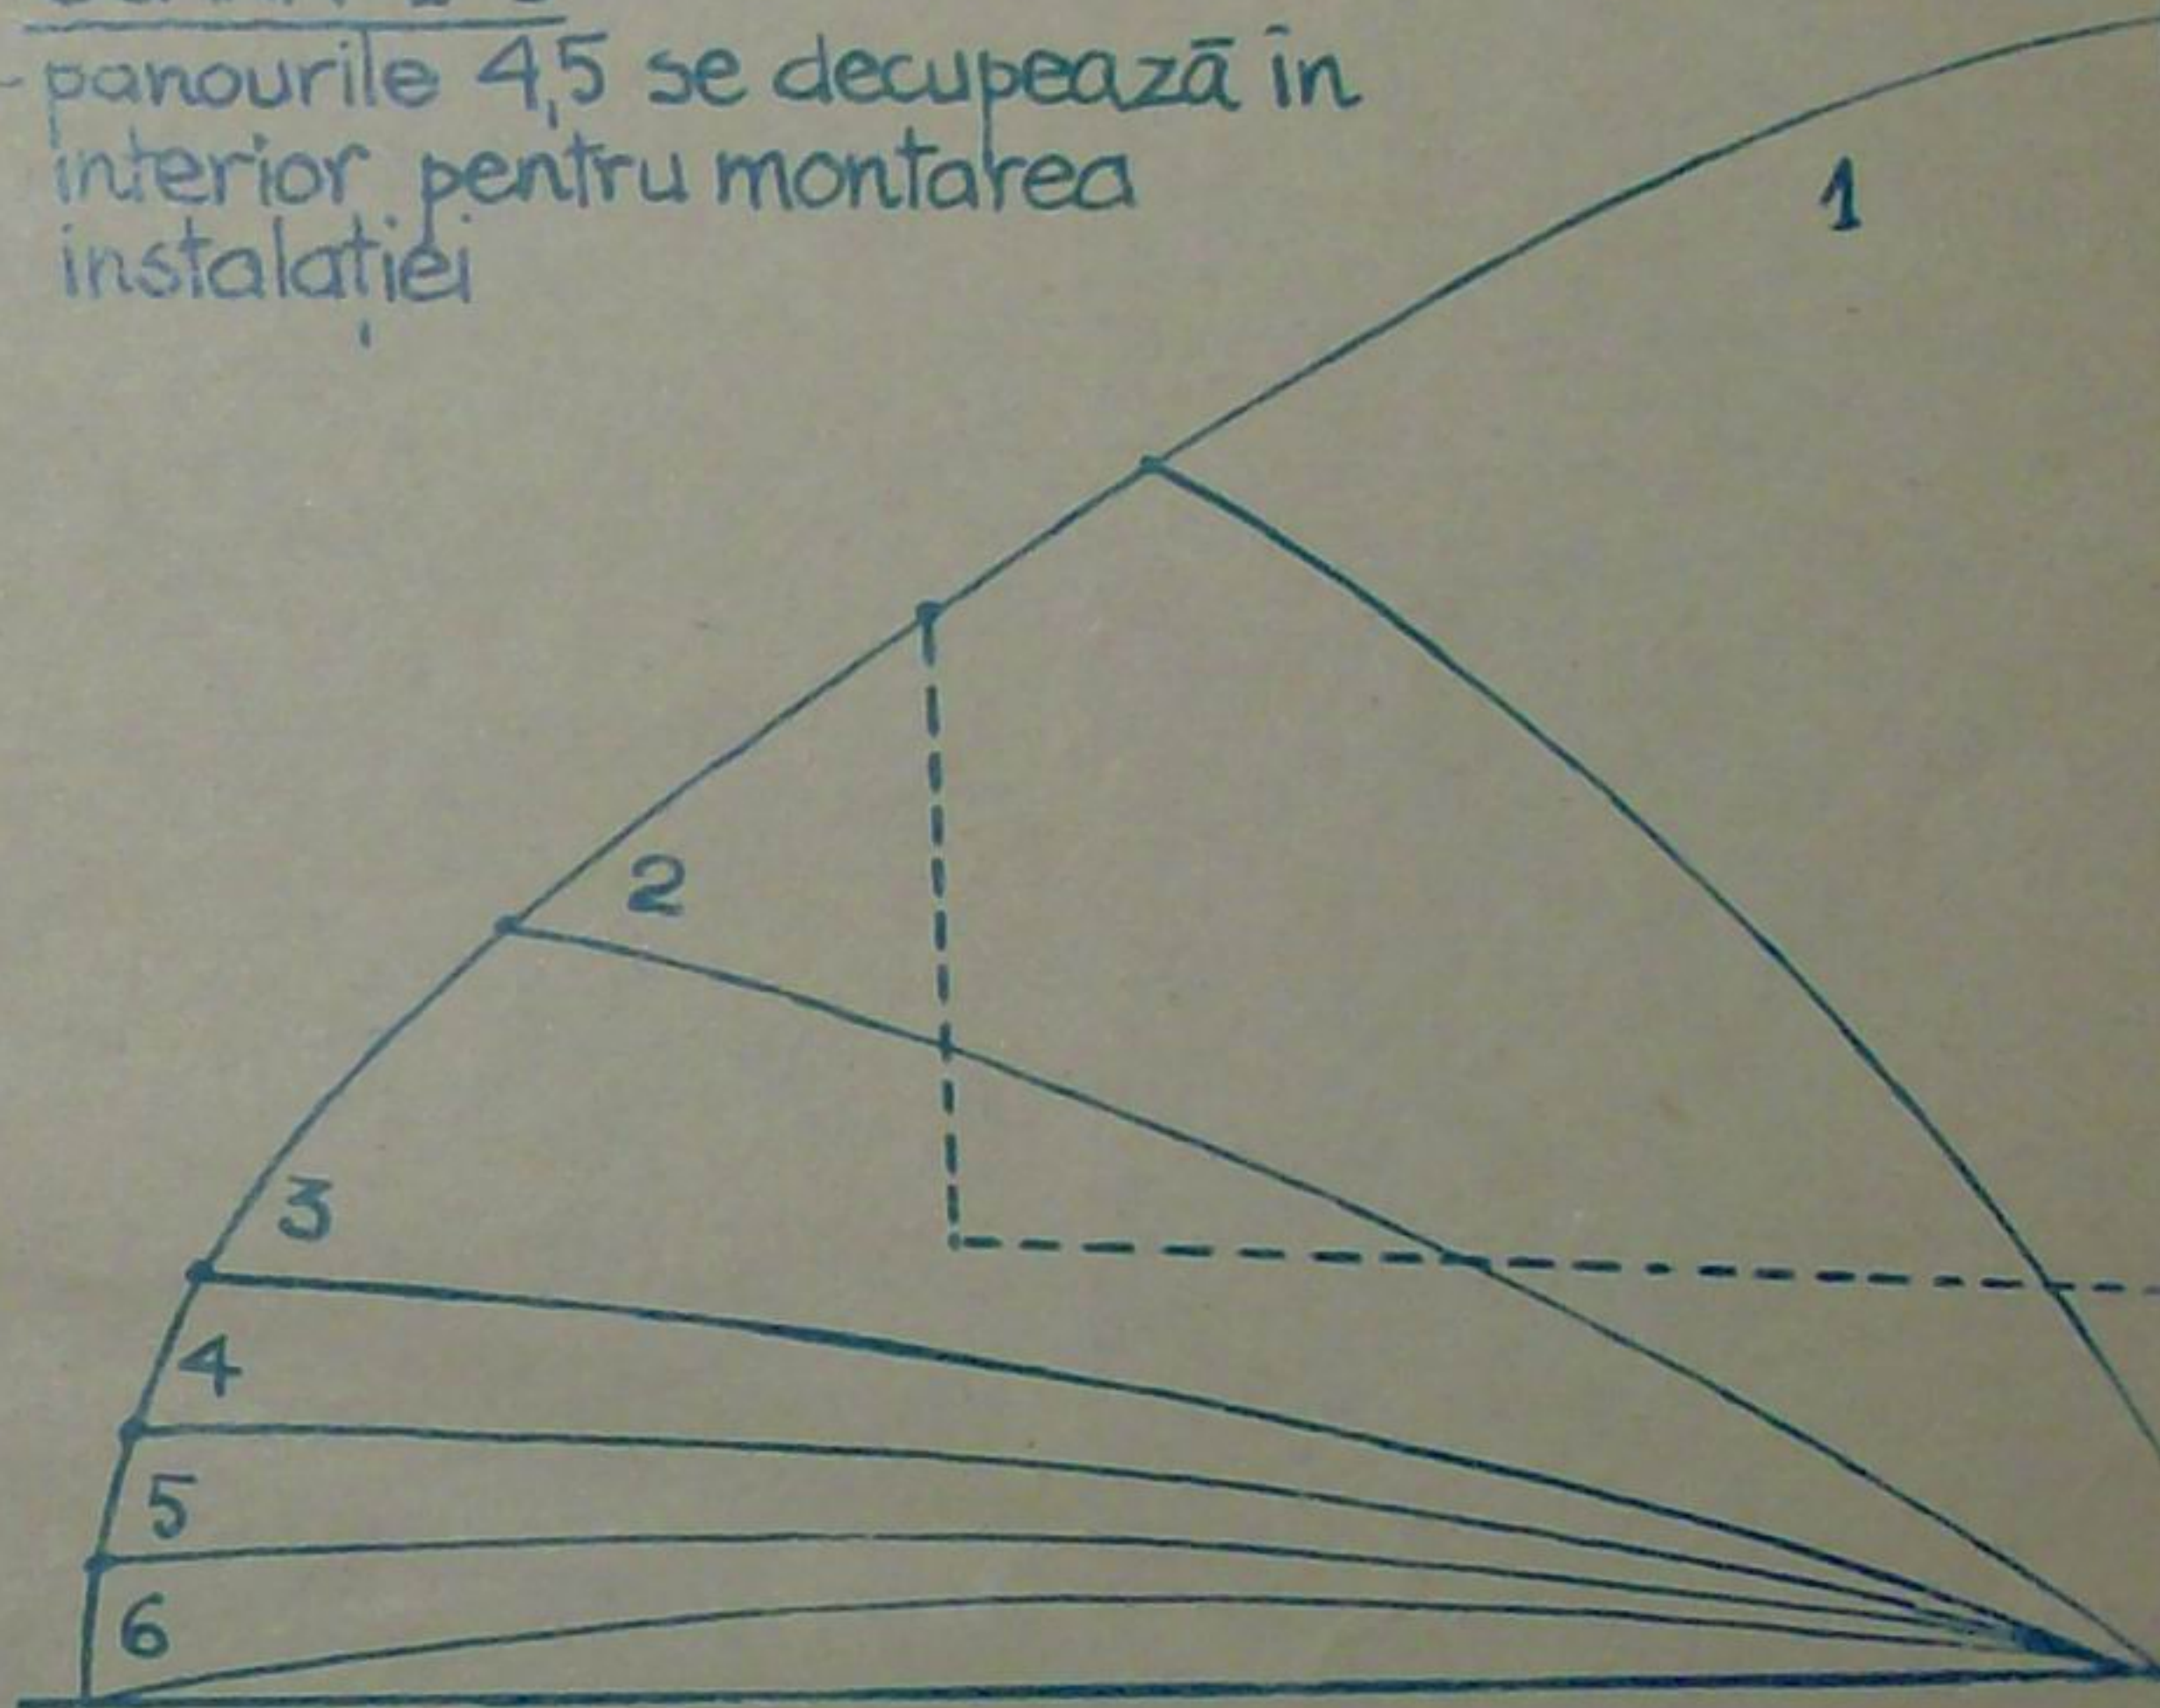 - panourile 4,5 se decupează în
interior pentru montarea
instalației
1
2
3
4
5
6